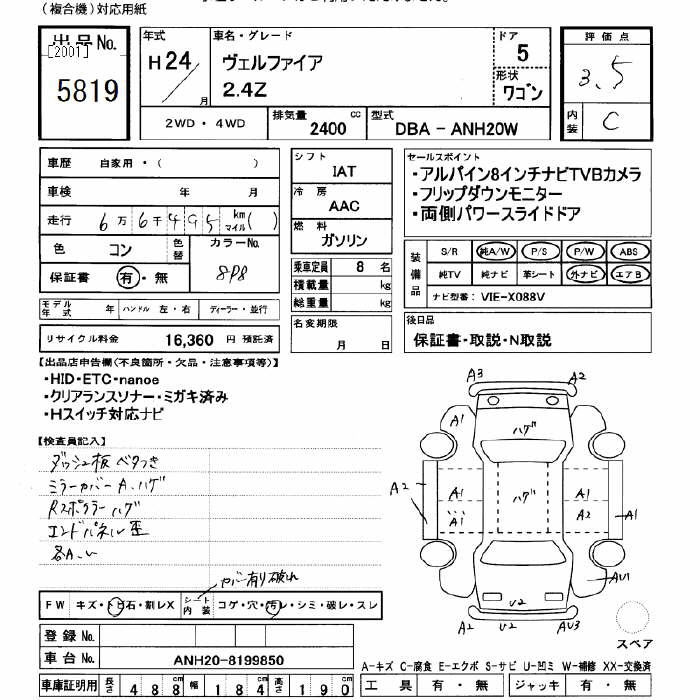 (複合機)対応用紙
出品No.
[2001]
5819
年式
H24
月
車名・グレード
ヴェルファイア
2.4Z
ドア
5
形状
ワゴン
評価点
3.5
内装
C
2WD・4WD
排気量
2400 cc
型式
DBA - ANH20W
車歴 自家用・( )
車検 年 月
走行 6万6千495 km マイル( )
色 コン 色替 カラーNo. 8P8
保証書 有・無
モデル年式 年 ハンドル 左・右 ディーラー・並行
リサイクル料金 16,360 円 預託済
シフト
IAT
冷房
AAC
燃料
ガソリン
乗車定員 8 名
積載量 kg
総重量 kg
名変期限
月 日
セールスポイント
・アルパイン8インチナビTVBカメラ
・フリップダウンモニター
・両側パワースライドドア
装備品
S/R 純A/W P/S P/W ABS
純TV 純ナビ 革シート 外ナビ エアB
ナビ型番: VIE-X088V
後日品
保証書・取説・N取説
【出品店申告欄(不良箇所・欠品・注意事項等)】
・HID・ETC・nanoe
・クリアランスソナー・ミガキ済み
・Hスイッチ対応ナビ
【検査員記入】
ダッシュ板ベタつき
ミラーカバーA、ハゲ
Rスポイラーハゲ
エンドパネル歪
各A、U
カバー有り破れ
FW キズ・トビ石・割レX シート内装 コゲ・穴・汚レ・シミ・破レ・スレ
登録No.
車台No. ANH20-8199850
車庫証明用 長さ 488 幅 184 高さ 190 cm
A3 A2
A1 ハゲ
A2 A1 ハゲ A1
A1 A2 A1
AU1
U2
A2 U2 AU3
スペア
A-キズ C-腐食 E-エクボ S-サビ U-凹ミ W-補修 XX-交換済
工具 有・無 ジャッキ 有・無